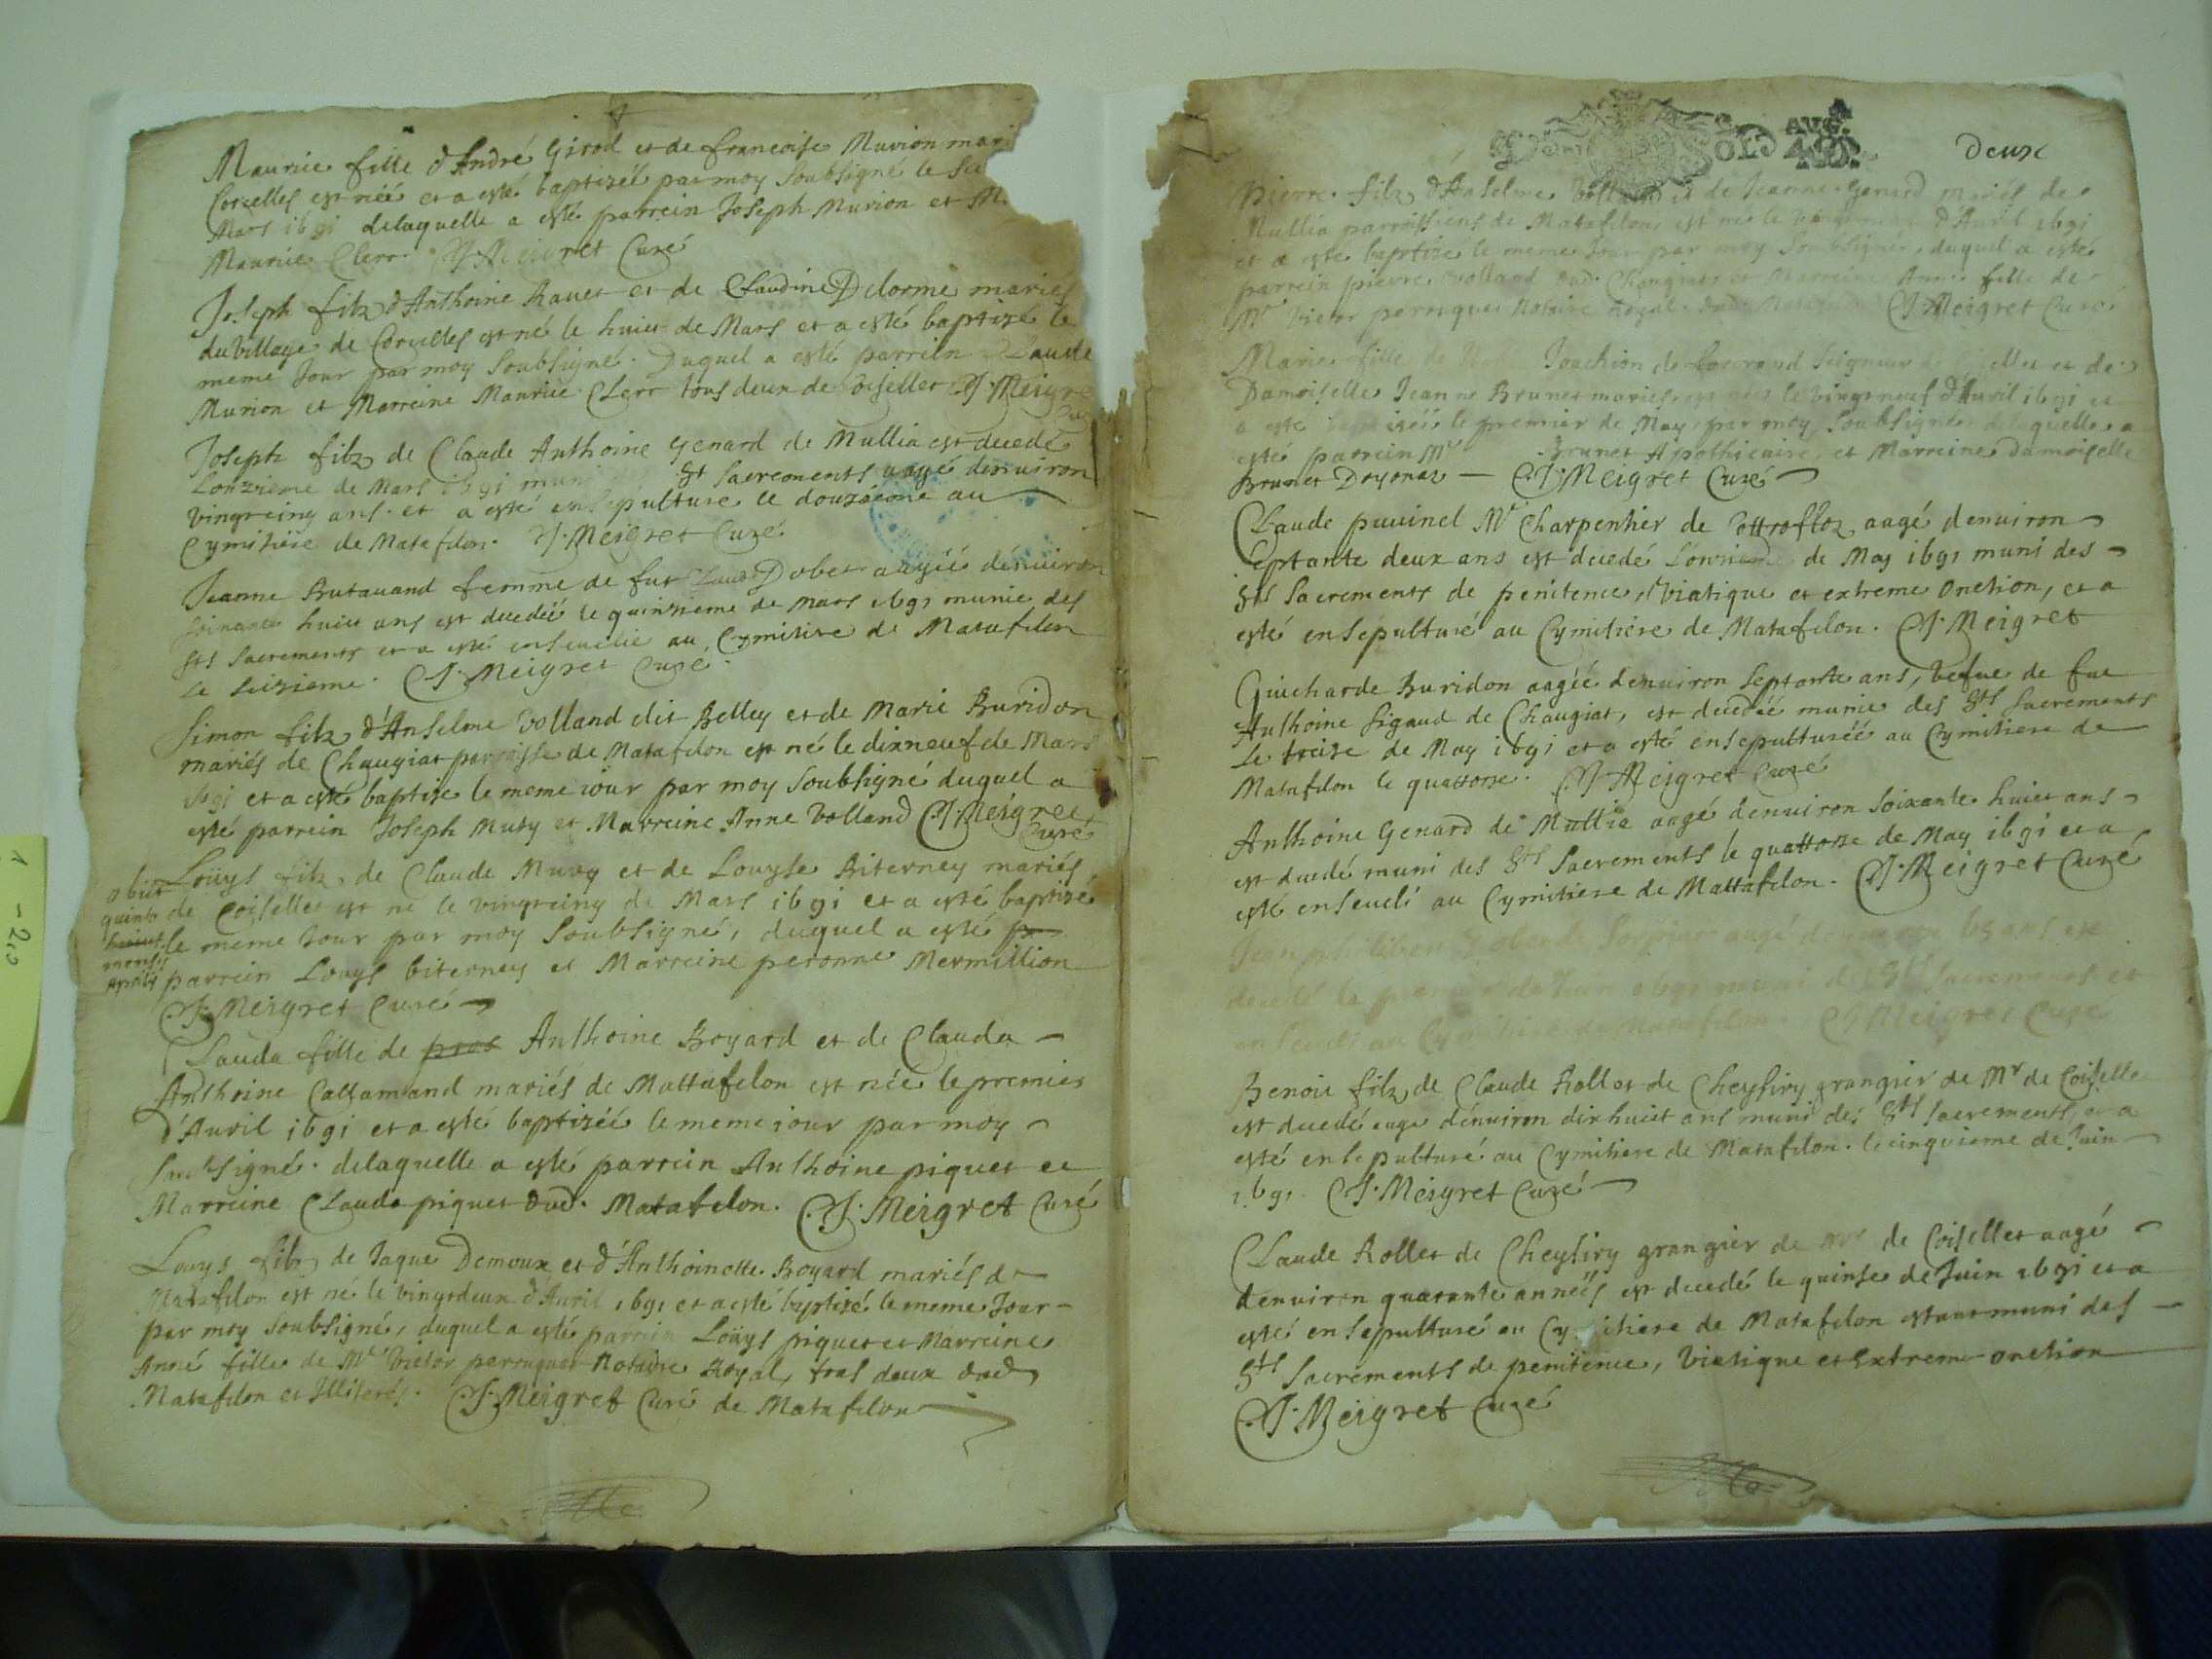 Maurise fille d'André Girod et de francoise Murion mari
Corcelles est néé et a esté baptiséé par moy Soubsigné le
Mars 1691 delaquelle a esté parrein Joseph Murion et M
Maurise Clerc. J. Meigret Curé
Joseph filz d'Anthoine Ravet et de Claudine Delorme mariés
du Village de Corcelles est né le huict de Mars et a esté baptizé le
meme Jour par moy Soubsigné. Duquel a esté parrein Claude
Murion et Marreine Maurise Clerc tous deux de Coiselles J. Meigre
Cur
Joseph filz de Claude Anthoine Genard de Mullia est decedé
Lonzieme de Mars 1691 muni Sts Sacrements aagé denuiron
vingtcinq ans. et a esté ensepulturé le douzieme au
Cymitiere de Matafelon. J. Meigret Curé
Jeanne Butavand femme de fut Claude Dobet aagéé denuiron
huict ans est decedéé le quinzieme de Mars 1691 munie des
Sts Sacrements et a esté enseuelie au Cymitiere de Matafelon
Le Seizieme. J. Meigret Curé.
Simon filz d'Anselme Volland dit Belley et de Marie Buridon
mariés de Chaugiat parroisse de Matafelon est né le dixneuf de Mars
1691 et a esté baptise le meme iour par moy Soubsigné duquel a
esté parrein Joseph Muty et Marreine Anne Volland J. Meigret
Curé
obiit
quinto
huius
mensis
Aprilis
Loüys filz de Claude Muty et de Louyse Biterney mariés
de Coiselles est né le vingtcinq de Mars 1691 et a esté baptizé
le meme Jour par moy Soubsigné, duquel a esté
parrein Louys biterney et Marreine peronne Mermillion
J. Meigret Curé
Clauda fille de Anthoine Boyard et de Clauda
Anthoine Callamand mariés de Mattafelon est néé le premier
d'Auril 1691 et a esté baptizéé le meme iour par moy
Soubsigné. delaquelle a esté parrein Anthoine piquet et
Marreine Clauda piquet dud. Matafelon. J. Meigret Curé
Louys filz de Jaque Demoux et d'Anthoinette Boyard mariés de
Matafelon est né le vingtdeux d'Auril 1691 et a esté baptizé le meme Jour
par moy Soubsigné, duquel a esté parrein Loüys piquet et Marreine
Anne fille de Mre Victor perruquet Notaire Royal, tous deux dud
Matafelon et Illiterés. J. Meigret Curé de Matafelon
SOLD AUG.
deux
Pierre filz d'Anselme Volland et de Jeanne Genard mariés de
Mullia parroissiens de Matafelon est né le d'Auril 1691
et a esté baptizé le meme Jour par moy Soubsigné, duquel a esté
parrein pierre Volland et Marreine Anne fille de
Mre Victor perruquet Notaire Royal J. Meigret Curé
Marie fille de Joachim de Seigneur de et de
Damoiselle Jeanne Brunet mariés est néé le vingtneuf d'Auril 1691 et
a esté baptizéé le premier de May par moy Soubsigné delaquelle a
esté parrein Mre Brunet Apothicaire, et Marreine Damoiselle
Brunet Doyonaz — J. Meigret Curé
Claude puuinel Mr Charpentier de aagé denuiron
Septante deux ans est decedé Lonzieme de May 1691 muni des
Sts Sacrements de penitence, Viatique et extreme Onction, et a
esté ensepulturé au Cymitiére de Matafelon. J. Meigret
Guicharde Buridon aagéé denuiron Septante ans, vefue de fut
Anthoine Sigaud de Chaugiat, est decedéé munie des Sts Sacrements
Le treize de May 1691 et a esté ensepulturéé au Cymitiere de
Matafelon le quattorse. J. Meigret Curé
Anthoine Genard de Mullia aagé denuiron Soixante huict ans
est decedé muni des Sts Sacrements le quattorse de May 1691 et a
esté enseueli au Cymitiere de Mattafelon. J. Meigret Curé
Jean philibert aagé denuiron 65 ans est
decedé le premier de Juin 1691 muni des Sts Sacrements et
enseueli au Cymitiere de Matafelon. J. Meigret Curé
Benoit filz de Claude Rollet de Cheysiry grangier de Mr de Coiselle
est decedé aagé denuiron dixhuict ans muni des Sts Sacrements, et a
esté ensepulturé au Cymitiere de Matafelon. le cinquieme de Juin
1691. J. Meigret Curé
Claude Rollet de Cheysiry grangier de Mr de Coiselles aagé
denuiron quarante annéés est decedé le quinse de Juin 1691 et a
esté ensepulturé au Cymitiere de Matafelon estant muni des
Sts Sacrements de penitence, Viatique et Extreme onction
J. Meigret Curé